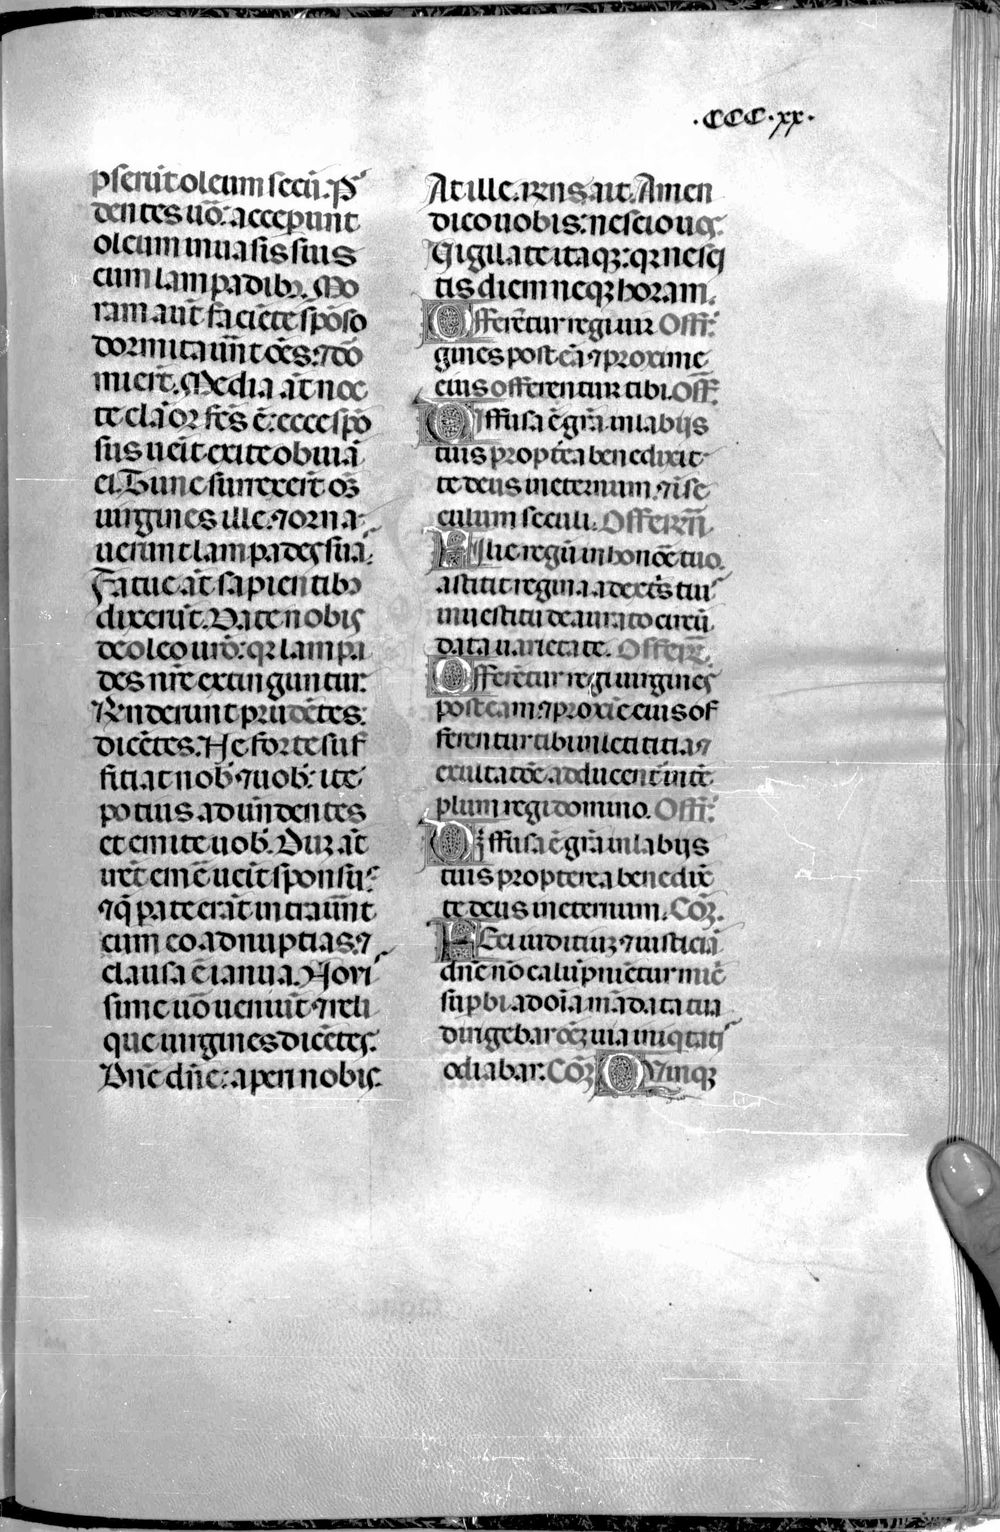 .CCC.xx.
pserūt oleum secū. Pͬ
dentes uō: acceperunt
oleum in uasis suis
cum lampadibꝫ. Mo
ram aūt faciēte spōso
dormitauūt oēs: ⁊ dō
mierūt. Media āt noc
te clāor fcs̄ ē: ecce spō
sus uēit exite obuiā
ei. Tunc surrexerūt oēs
uirgines ille. ⁊ orna
uerunt lampades suā.
Fatue āt sapientibꝫ
dixerūt. Date nobis
de oleo uro: qꝛ lampa
des nrē extinguntur.
Rn̄derunt prudētes:
dicētes. Ne forte suf
fitiat nob ⁊ uob: ite
potius ad uendentes
et emite uob. Duꝫ āt
irēt emē uēit sponsuˢ
⁊ q̄ pate erāt intrauūt
cum eo ad nuptias. ⁊
clausa ē ianua. Noui
sime uō ueniūt ⁊ reli
que uirgines dicētes.
Dnē dnē: aperi nobis.
At ille. rn̄s ait. Amen
dico uobis: nescio uos.
Vigilate itaqꝫ: qꝛ nesci
tis diem neqꝫ horam.
Offerētur regi uir Offꝫ
gines post eā ⁊ proxime
eius offerentur tibi. Off.
Diffusa ē gr̄a in labijs
tuis proptēa benedixit
te deus in eternum. ⁊ ī se
culum seculi. Offerēn.
Filie regū in honōe tuo.
astitit regina a dextˢ tuiˢ
in uestitu deaurato circū
data uarietate. Offerꝫ
Offerētur regi uirgines
post eam ⁊ proxīe eius of
ferentur tibi in letitia ⁊
exultatōe adducent in tē
plum regi domino. Offꝫ
Diffusa ē gr̄a in labijs
tuis propterea benedix̄
te deus in eternum. Coꝫ.
Feci iuditiuꝫ ⁊ iusticiā
dn̄e nō calūpnientur mic̄
supbi ad oīa mādata tua
dirigebar oēꝫ uiā iniqtatiˢ
odiabar: Coꝫ Quinqꝫ